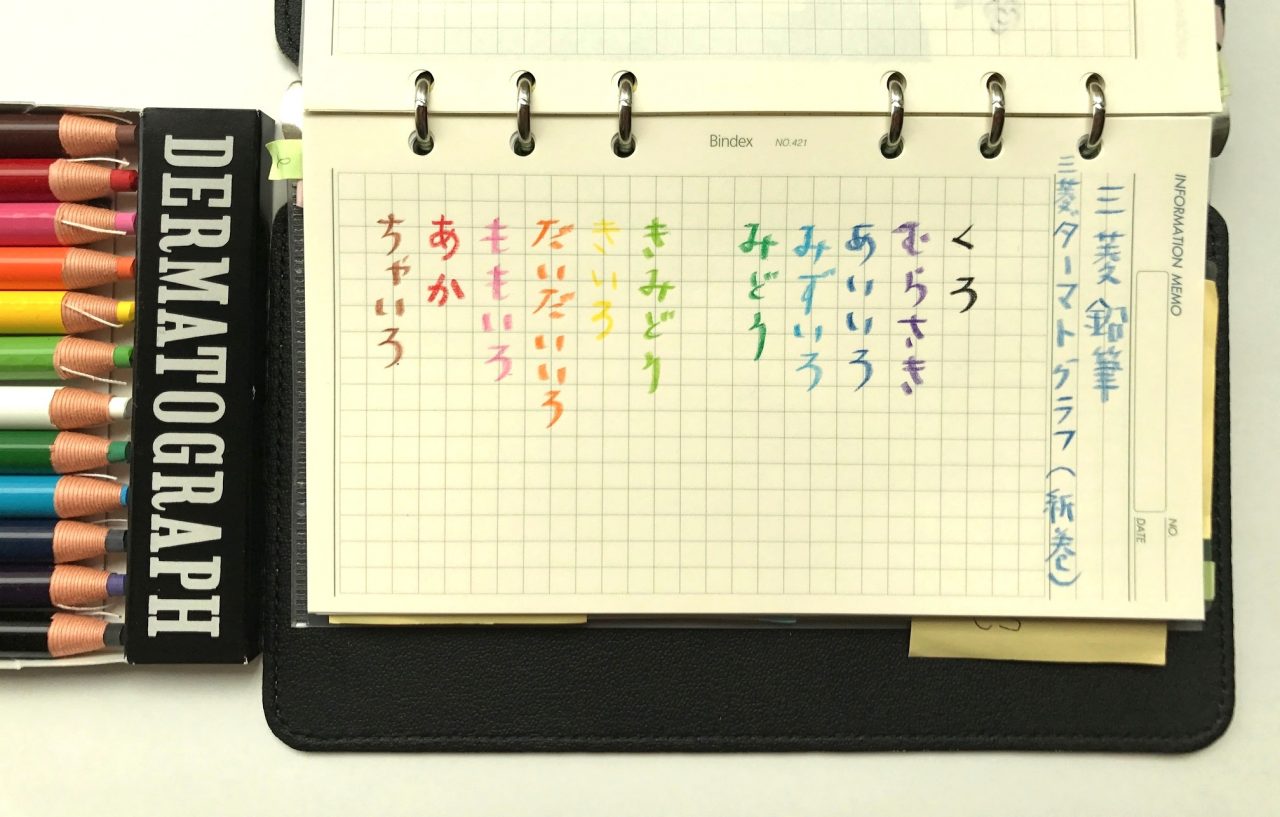 DERMATOGRAPH
Bindex NO.421
INFORMATION MEMO
NO.
DATE
三菱鉛筆
三菱ダーマトグラフ(紙巻)
くろ
むらさき
あいいろ
みずいろ
みどり
きみどり
きいろ
だいだいいろ
ももいろ
あか
ちゃいろ